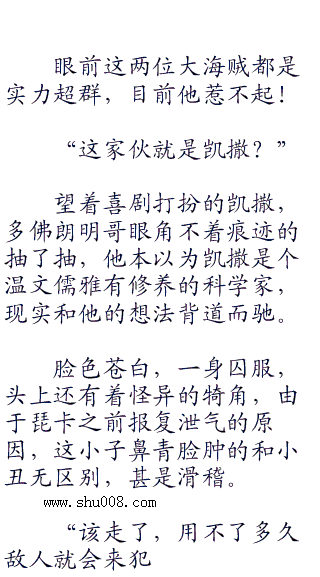 眼前这两位大海贼都是
实力超群，目前他惹不起！
“这家伙就是凯撒？”
望着喜剧打扮的凯撒，
多佛朗明哥眼角不着痕迹的
抽了抽，他本以为凯撒是个
温文儒雅有修养的科学家，
现实和他的想法背道而驰。
脸色苍白，一身囚服，
头上还有着怪异的犄角，由
于琵卡之前报复泄气的原
因，这小子鼻青脸肿的和小
丑无区别，甚是滑稽。
www.shu008.com
“该走了，用不了多久
敌人就会来犯